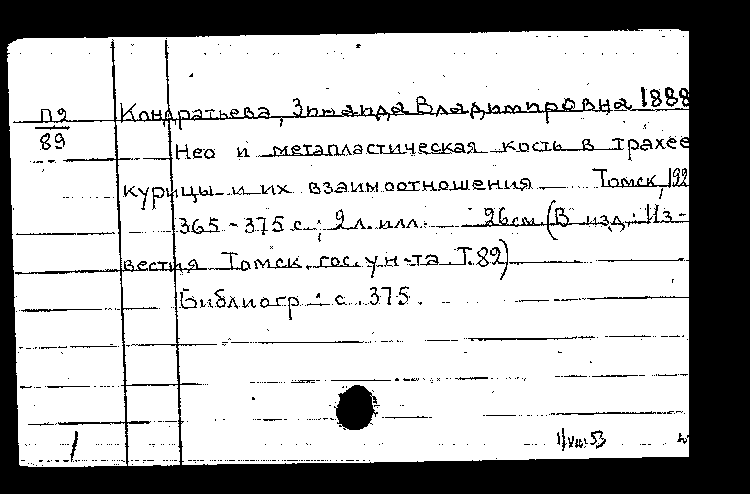 П9
89
Кондратьева, Зинаида Владимировна 1888
Нео и метапластическая кость в трахее
курицы и их взаимоотношения Томск, 192
365-375 с.; 2 л. илл. 26 см (В изд.: Из-
вестия Томск. гос. ун-та Т.89)
Библиогр.: с. 375.
1
1/VIII 53